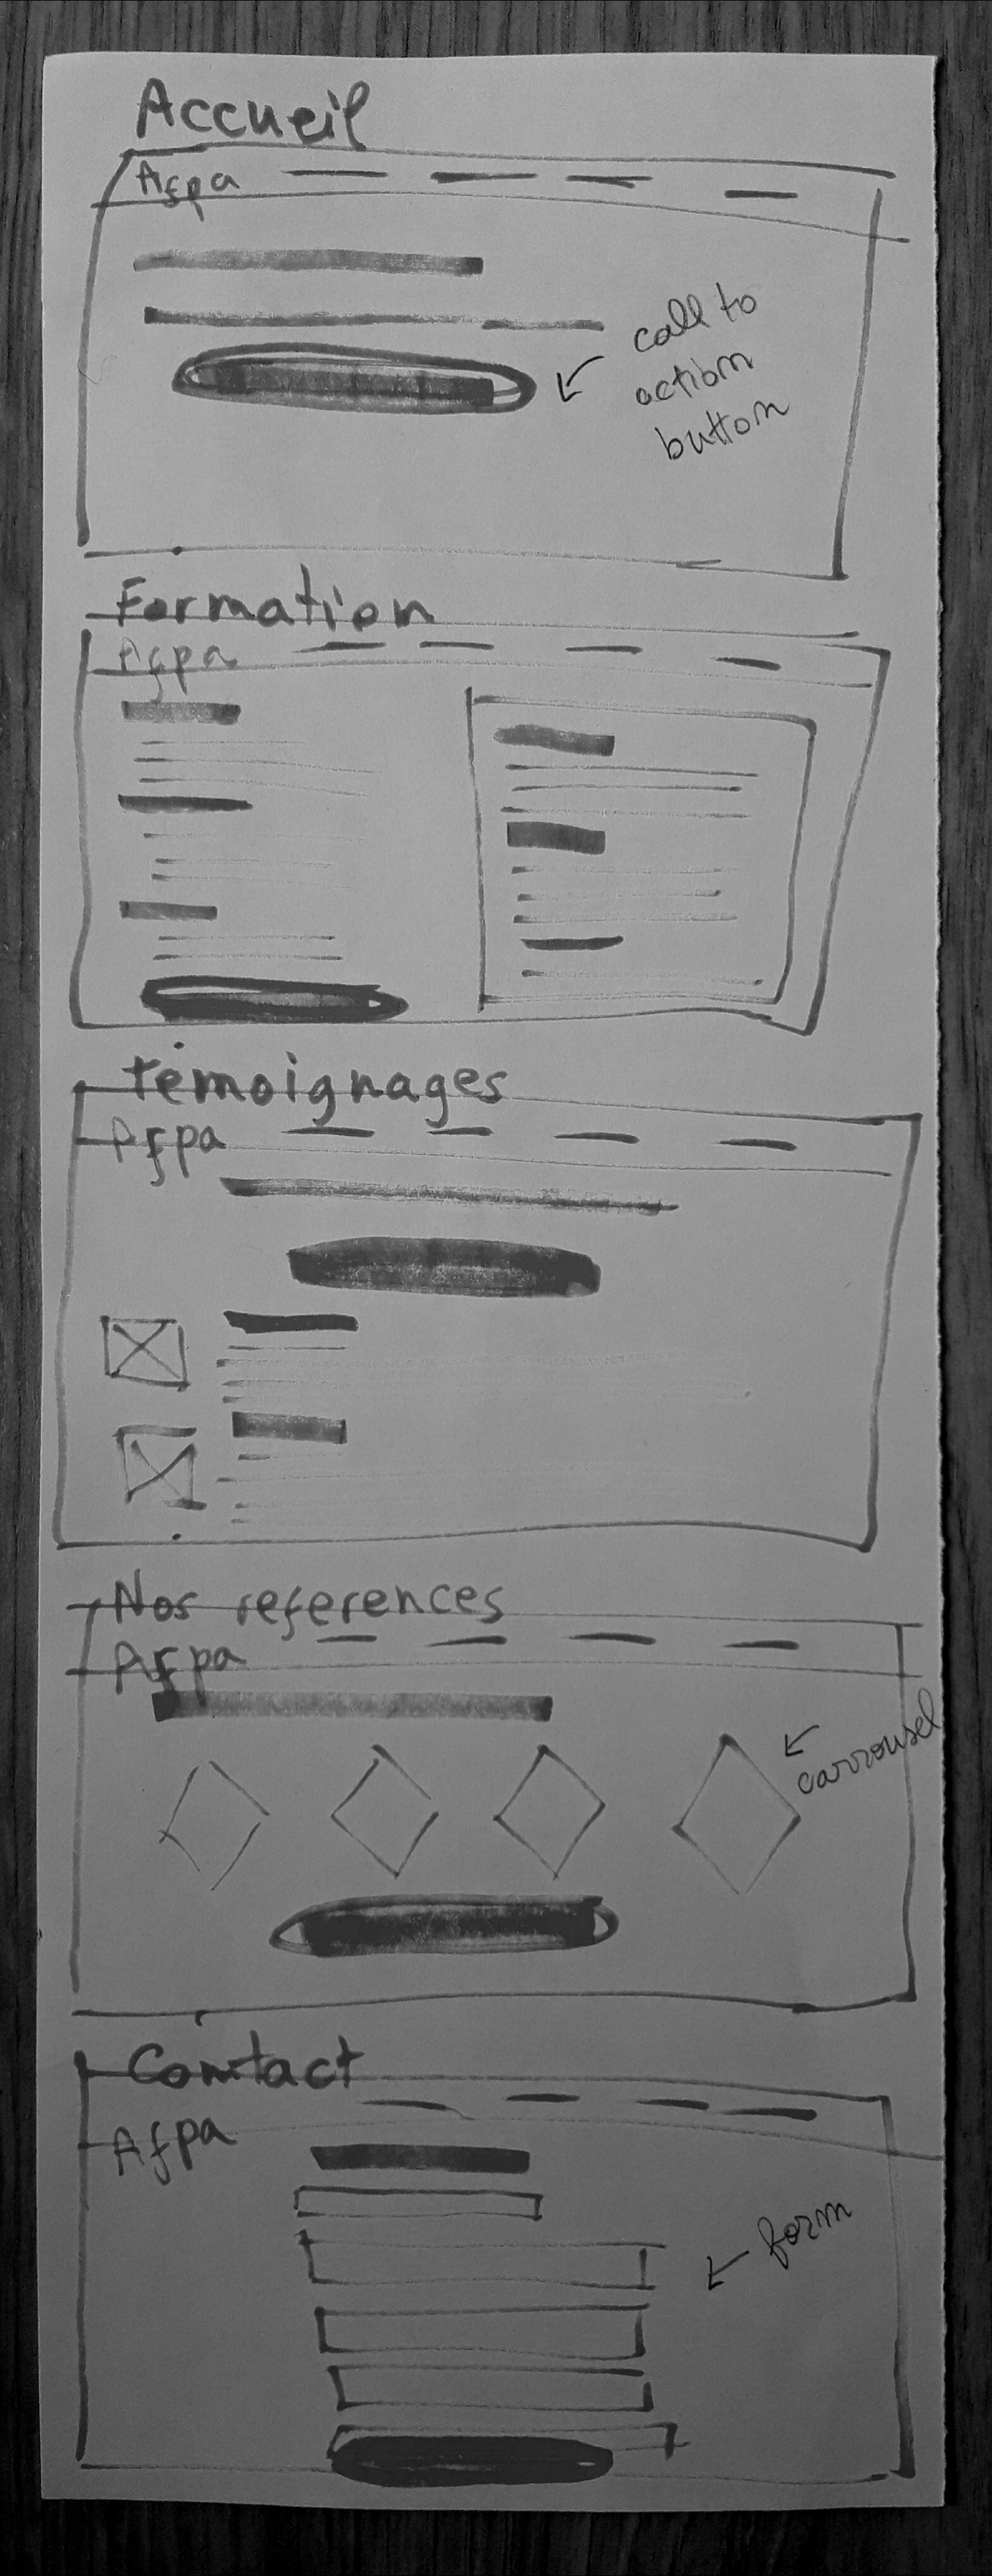 Accueil
Afpa
call to
action
button
Formation
Afpa
témoignages
Afpa
Nos references
Afpa
carrousel
Contact
Afpa
form